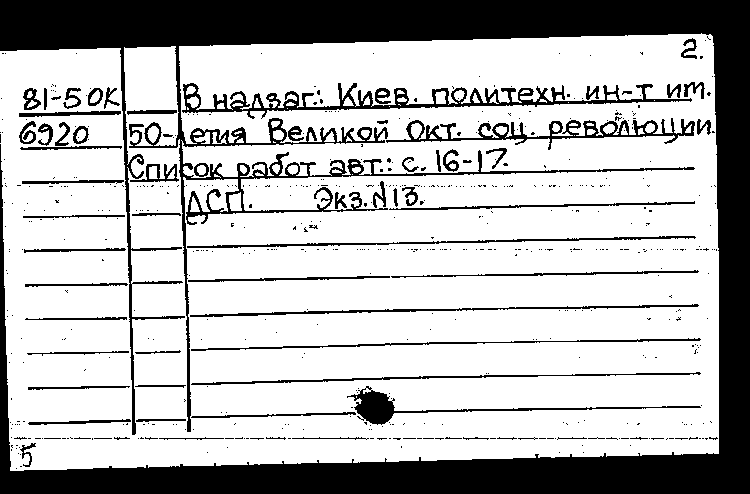 2.
81-50К В надзаг.: Киев. политехн. ин-т им.
6920 50-летия Великой Окт. соц. революции.
Список работ авт.: с. 16-17.
ДСП. Экз.N13.
5